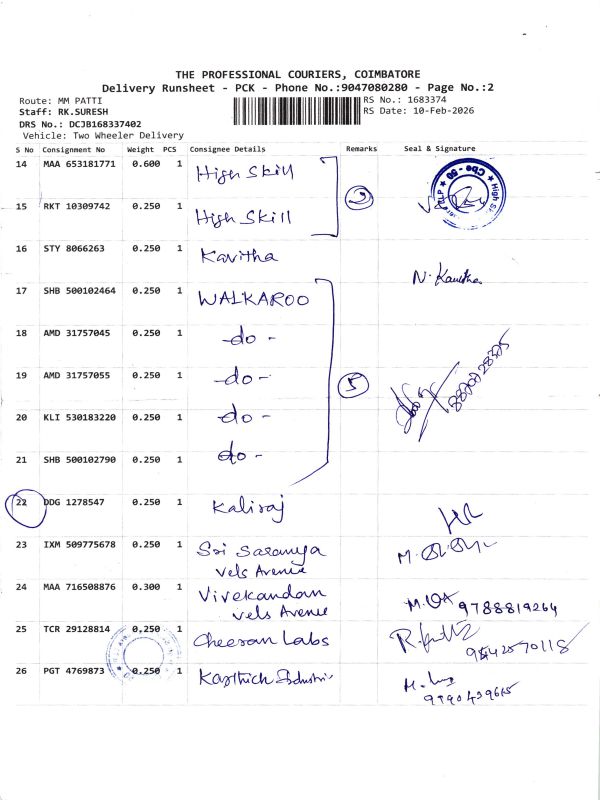 THE PROFESSIONAL COURIERS, COIMBATORE
Delivery Runsheet - PCK - Phone No.:9047080280 - Page No.:2
Route: MM PATTI
RS No.: 1683374
Staff: RK.SURESH
RS Date: 10-Feb-2026
DRS No.: DCJB168337402
Vehicle: Two Wheeler Delivery
S No Consignment No Weight PCS Consignee Details Remarks Seal & Signature
14 MAA 653181771 0.600 1 High Skill
15 RKT 10309742 0.250 1 High Skill
16 STY 8066263 0.250 1 Kavitha N. Kavitha
17 SHB 500102464 0.250 1 WALKAROO
18 AMD 31757045 0.250 1 -do-
19 AMD 31757055 0.250 1 -do- 5
20 KLI 530183220 0.250 1 -do-
21 SHB 500102790 0.250 1 -do-
22 DDG 1278547 0.250 1 Kaliraj
23 IXM 509775678 0.250 1 Sri Saranya
Vels Avenue
24 MAA 716508876 0.300 1 Vivekandan
Vels Avenue 9788819264
25 TCR 29128814 0.250 1 Cheeran Labs
26 PGT 4769873 0.250 1 Karthick